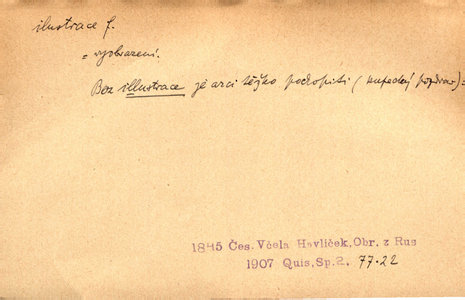 ilustrace f.
= vyobrazení.
Bez illustrace je arci těžko pochopiti (
1845 Čes. Včela Havlíček, Obr. z Rus
1907 Quis, Sp. 2. 77.22